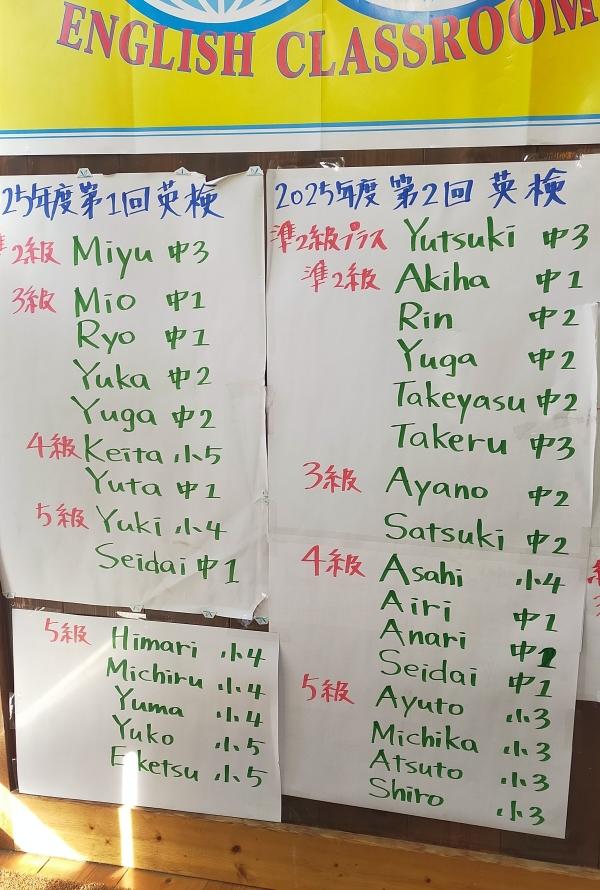 ENGLISH CLASSROOM
25年度第1回英検
準2級 Miyu 中3
3級 Mio 中1
Ryo 中1
Yuka 中2
Yuga 中2
4級 Keita 小5
Yuta 中1
5級 Yuki 小4
Seidai 中1
5級 Himari 小4
Michiru 小4
Yuma 小4
Yuko 小5
Eketsu 小5
2025年度 第2回 英検
準2級プラス Yutsuki 中3
準2級 Akiha 中1
Rin 中2
Yuga 中2
Takeyasu 中2
Takeru 中3
3級 Ayano 中2
Satsuki 中2
4級 Asahi 小4
Airi 中1
Anari 中1
Seidai 中1
5級 Ayuto 小3
Michika 小3
Atsuto 小3
Shiro 小3